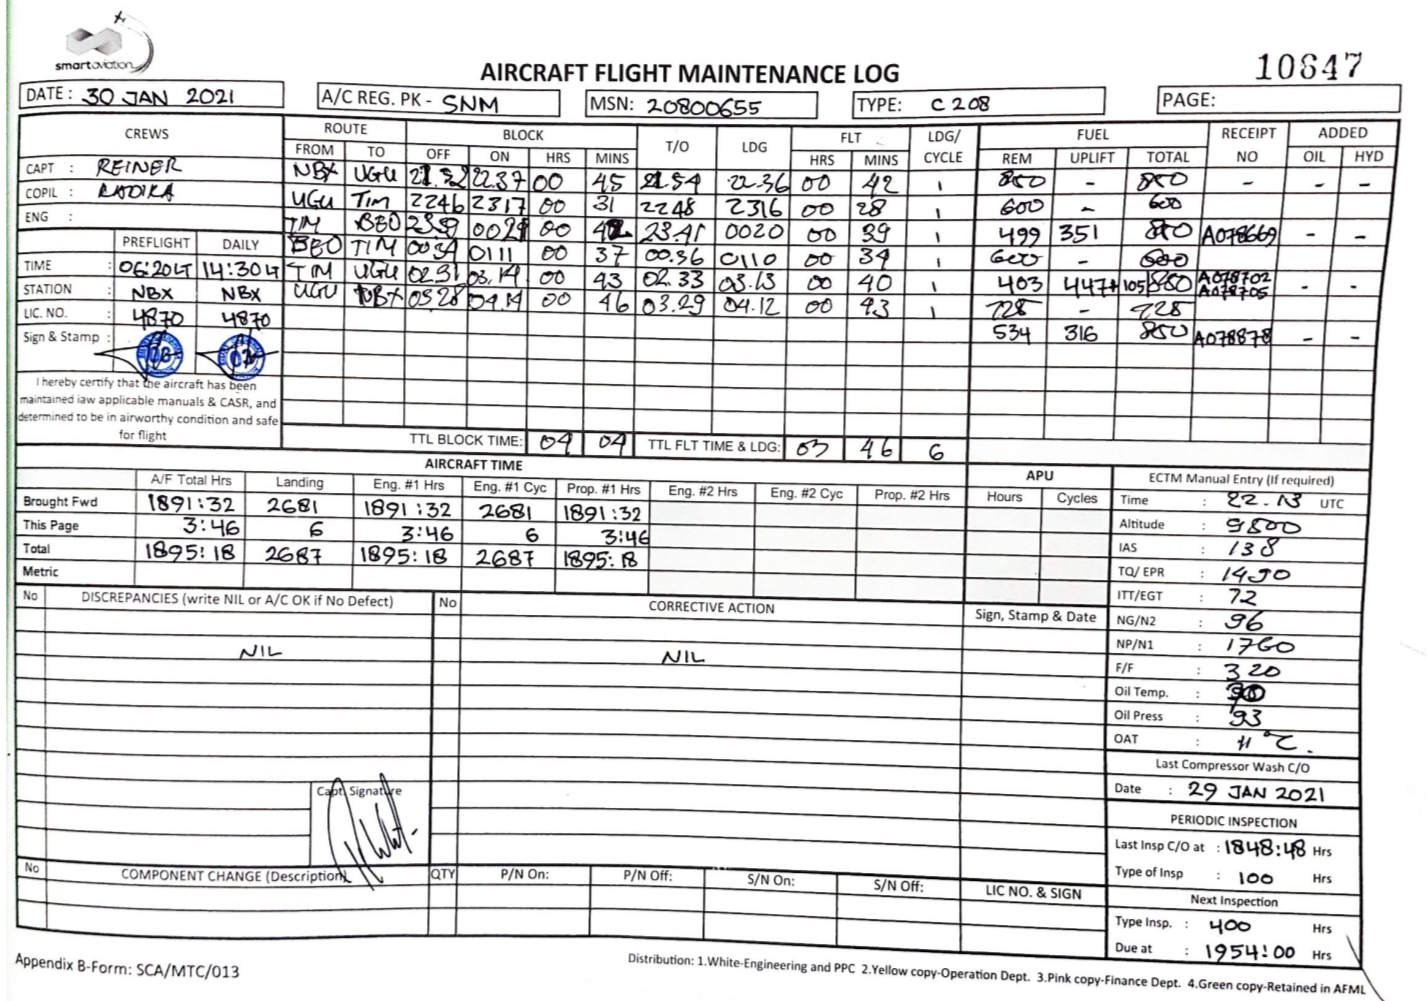 smartaviation
10647
AIRCRAFT FLIGHT MAINTENANCE LOG
DATE : 30 JAN 2021 A/C REG. PK - SNM MSN: 20800655 TYPE: C 208 PAGE:
CREWS ROUTE BLOCK T/O LDG FLT LDG/ CYCLE FUEL RECEIPT NO ADDED
FROM TO OFF ON HRS MINS HRS MINS REM UPLIFT TOTAL OIL HYD
CAPT : REINER NBX UGU 22.37 00 45 21.54 22.36 00 42 1 850 - 850 - - -
COPIL : RADIKA UGU TIM 2246 2317 00 31 2248 2316 00 28 1 600 - 600
ENG : TIM BEO 0029 00 23.41 0020 00 39 1 499 351 850 A078669 - -
BEO TIM 0034 0111 00 37 00.36 0110 00 34 1 600 - 600
PREFLIGHT DAILY
TIME : 06:20LT 14:30LT TIM UGU 02.31 03.14 00 43 02.33 03.13 00 40 1 403 447+105 A078702 A078705 - -
STATION : NBX NBX UGU NBX 03.28 04.14 00 46 03.29 04.12 00 43 1 728 - 728
LIC. NO. : 4870 4870 534 316 850 A078878 - -
Sign & Stamp :
I hereby certify that the aircraft has been
maintained iaw applicable manuals & CASR, and
determined to be in airworthy condition and safe
for flight
TTL BLOCK TIME: 04 04 TTL FLT TIME & LDG: 03 46 6
AIRCRAFT TIME APU ECTM Manual Entry (If required)
A/F Total Hrs Landing Eng. #1 Hrs Eng. #1 Cyc Prop. #1 Hrs Eng. #2 Hrs Eng. #2 Cyc Prop. #2 Hrs Hours Cycles
Brought Fwd 1891:32 2681 1891:32 2681 1891:32
This Page 3:46 6 3:46 6 3:46
Total 1895:18 2687 1895:18 2687 1895:18
Metric
Time : 22.13 UTC
Altitude : 9800
IAS : 138
TQ/ EPR : 1490
ITT/EGT : 72
NG/N2 : 96
NP/N1 : 1760
F/F : 320
Oil Temp. :
Oil Press : 93
OAT : 11 °C.
No DISCREPANCIES (write NIL or A/C OK if No Defect) No CORRECTIVE ACTION Sign, Stamp & Date
NIL NIL
Capt. Signature
Last Compressor Wash C/O
Date : 29 JAN 2021
PERIODIC INSPECTION
Last Insp C/O at : 1848:48 Hrs
Type of Insp : 100 Hrs
Next Inspection
Type Insp. : 400 Hrs
Due at : 1954:00 Hrs
No COMPONENT CHANGE (Description) QTY P/N On: P/N Off: S/N On: S/N Off: LIC NO. & SIGN
Appendix B-Form: SCA/MTC/013
Distribution: 1.White-Engineering and PPC 2.Yellow copy-Operation Dept. 3.Pink copy-Finance Dept. 4.Green copy-Retained in AFML